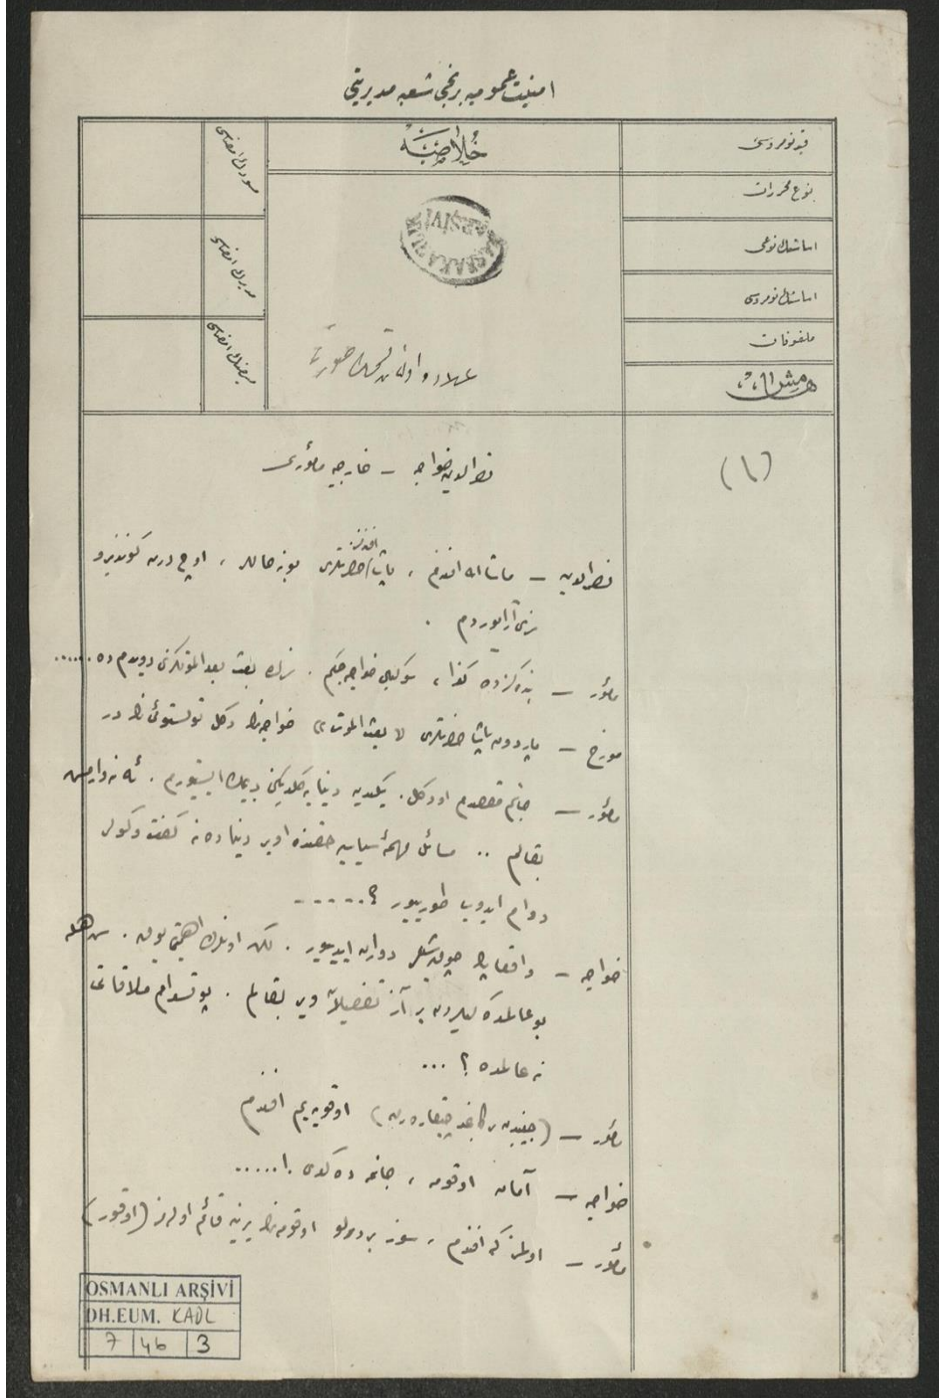 امنیت عمومیه برنجی شعبه مدیریتی
قید نومروسی
نوع محررات
اساسنك نوعی
اساسنك نومروسی
ملفوفات
هامش
خلاصه
مسودك امضاسی
مدیرك امضاسی
مبیضك امضاسی
ARŞİVİ
(١)
نصرالدین خواجه – خارجیه مأموری
نصرالدین – ماشاءالله افندم ، پاشا حضرتلری بو نه حاللر ، اوچ درت كوندنبرو
سزی آرایوردم .
مأمور – بنده كزده كذا ، سوكیلی خواجه جكم . سزك بعث بعد الموتكزی دویدم ده ......
مورخ – پاردون پاشا حضرتلری لا بعث الموت خواجه دكل تولستوئی در
مأمور – جانم مقصدم او دكل . یكیدن دنیایه كلدیكنی دیمك ایستیورم . ئه نه وار
بقالم .. مسائل مهمۀ سیاسیه حقنده اوبر دنیاده نه كفت وكولر
دوام ایدوب طورییور ؟ ......
خواجه – واقعا چوق شیلر دوران ایدییور . لكن اونلرك اهمیتی یوق . سن هله
بو عالمده كیلردن بر آز تفصیلات ویر بقالم . پوتسدام ملاقاتی
نه عالمده ؟ ...
مأمور – (جیبندن بر كاغد چیقاره رق) اوقویه یم افندم
خواجه – آمان اوقومه ، جانمه ده كدی ! ......
مأمور – اولمز كه افندم ، سوز بر درلو اوقومه نك یرینه قائم اولمز (اوقور)
OSMANLI ARŞİVİ
DH.EUM. KADL
7 | 46 | 3